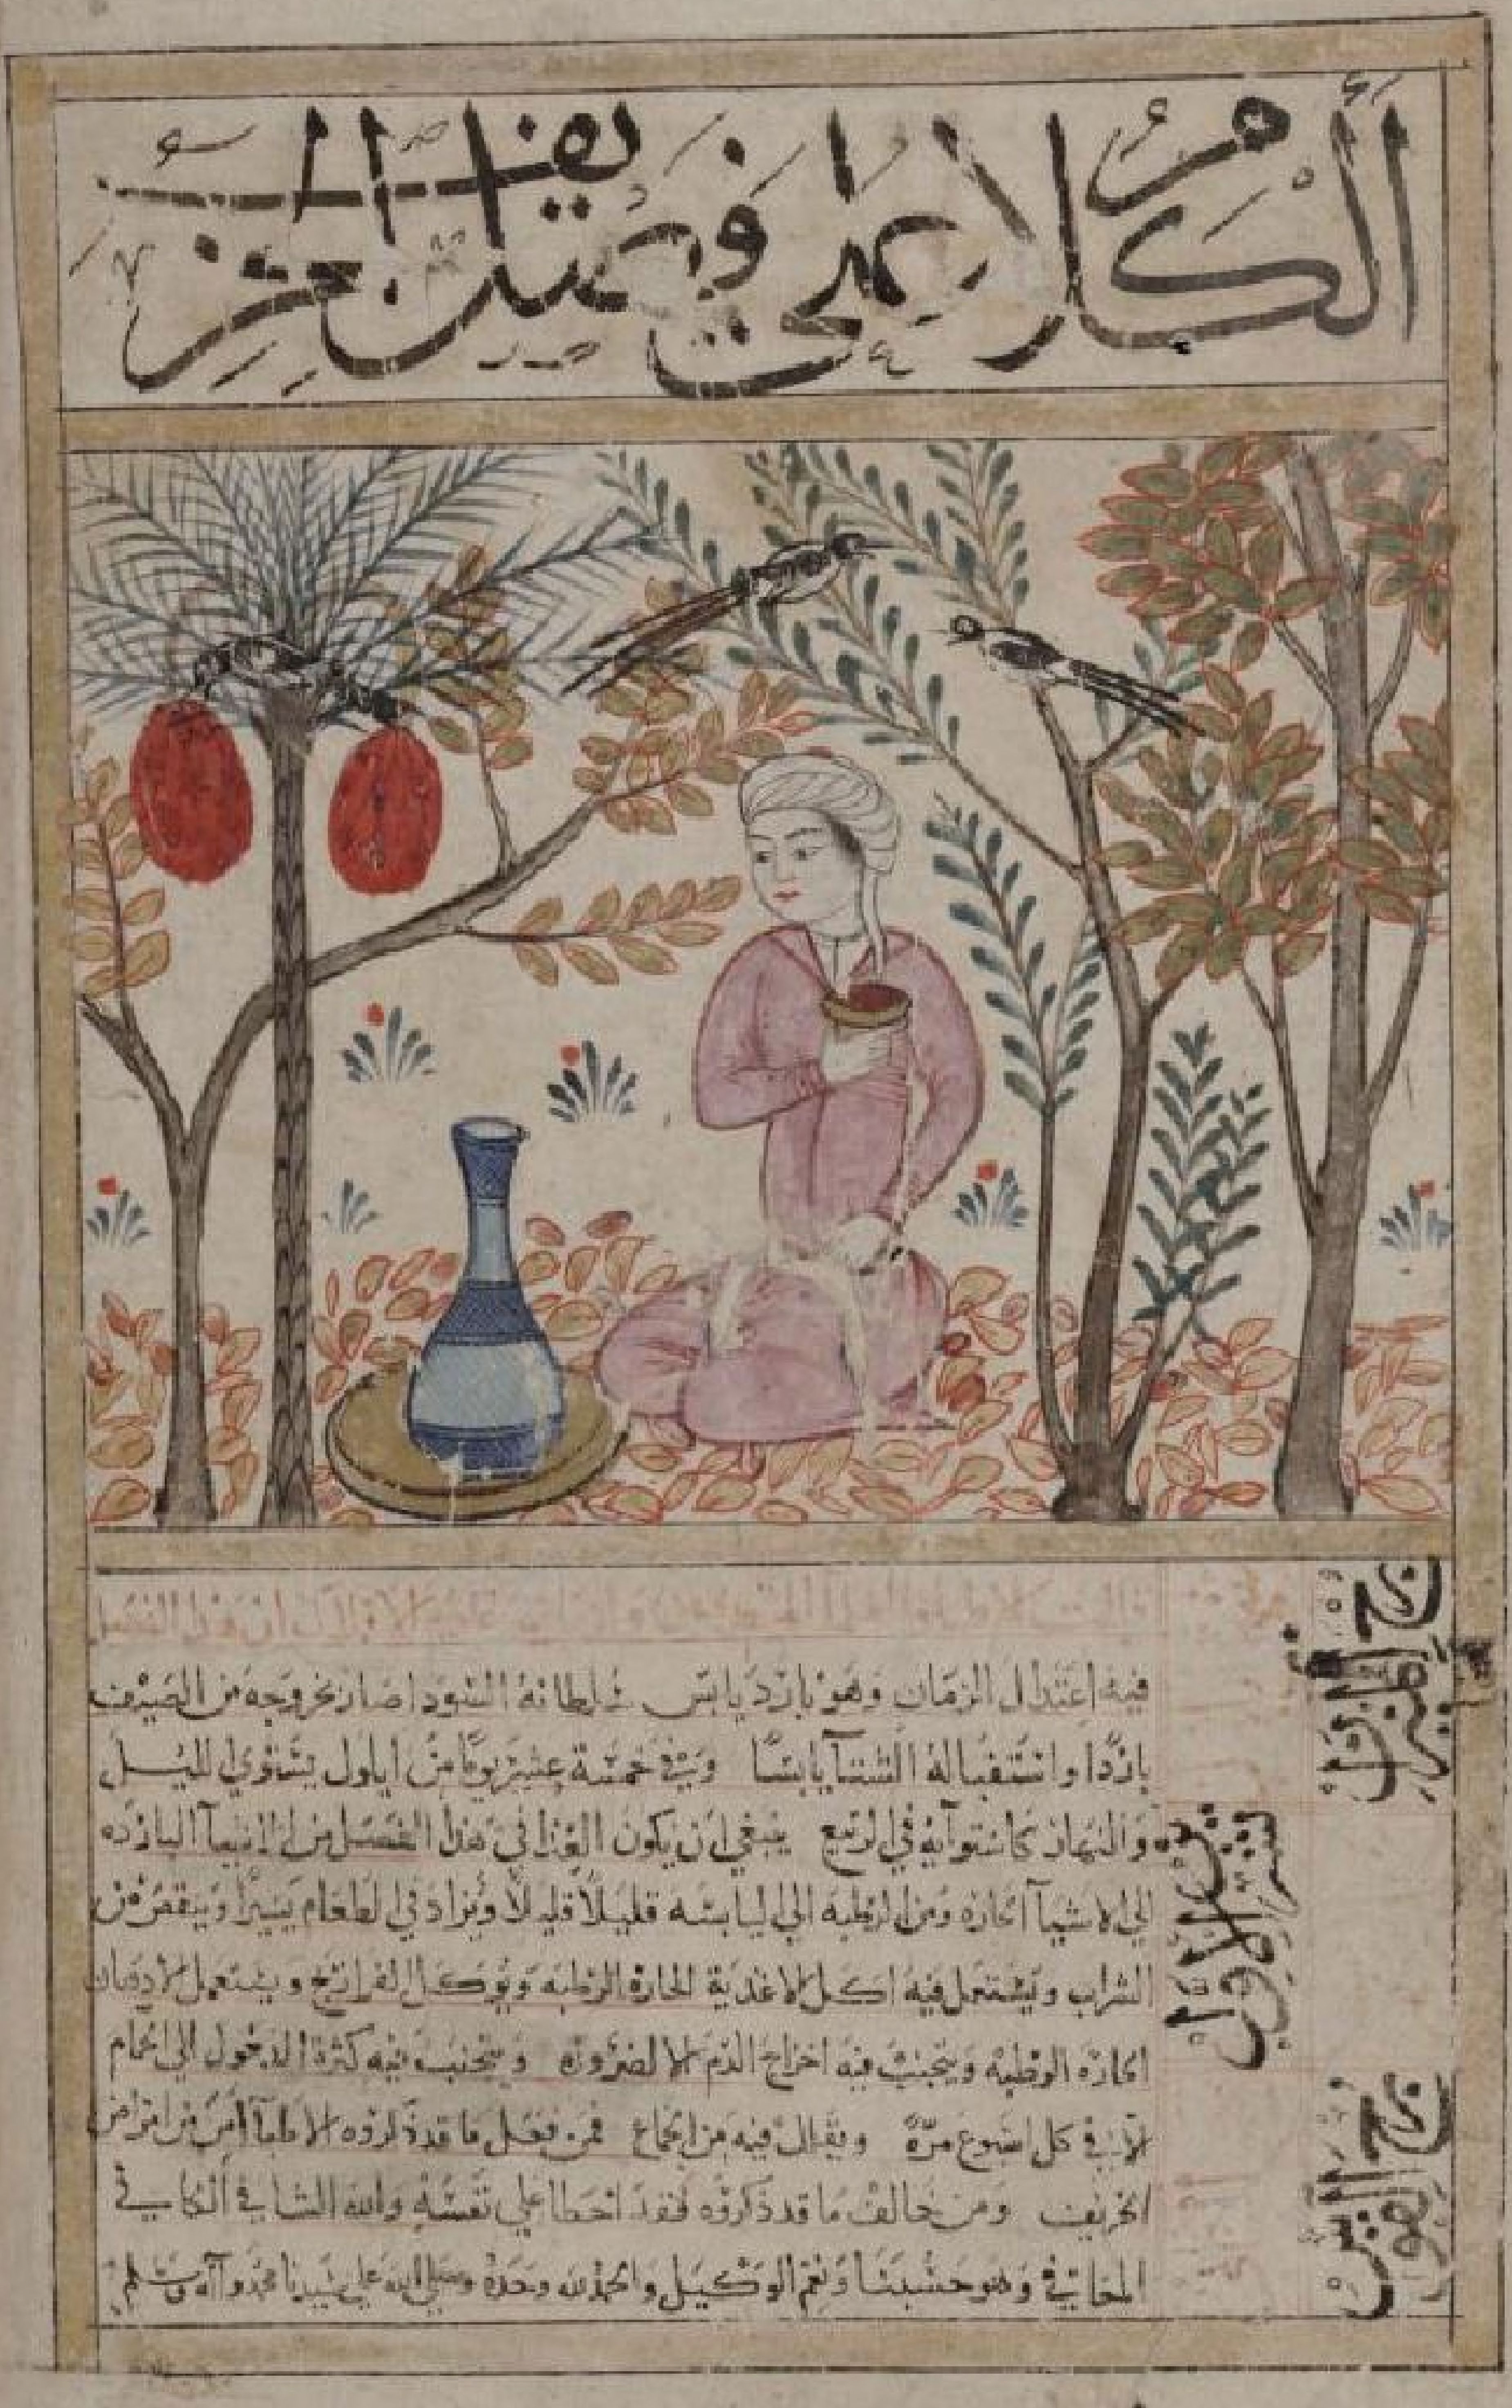 الكلام على فصل الخريف
الاطبا ان هذا الفصل
فيه اعتدال الزمان وهو بارد يابس سلطانه السودا صار بخروجه من الصيف
باردا واستقباله الشتآ يابسًا وفي خمسة عشر يومًا من ايلول يستوي الليل
والنهار كاستوآيه في الربيع ينبغي ان يكون الغذا في هذا الفصل من الاشيآ البارده
الي الاشيآ الحاره ومن الرطبه الي اليابسه قليلاً قليلاً ويزاد في الطعام يسيرًا وينقص من
الشراب ويستعمل فيه اكل الاغذية الحارة الرطبه ويوكل الفراريج ويستعمل الادهان
الحارة الرطبه ويتجنب فيه اخراج الدم الا لضرورة ويتجنب فيه كثرة الدخول الي الحمام
الا في كل اسبوع مرّة ويقلل فيه من الجماع فمن فعل ما قد ذكروه الاطبآ امن من امراض
الخريف ومن خالف ما قد ذكروه فقد اخطا علي نفسه والله الشافي الكافي
المعافي وهو حسبنا ونعم الوكيل والحمد لله وحده وصلي الله علي سيدنا محمد وآله وسلم
برج الميزان
تشرين الاول
برج القوس